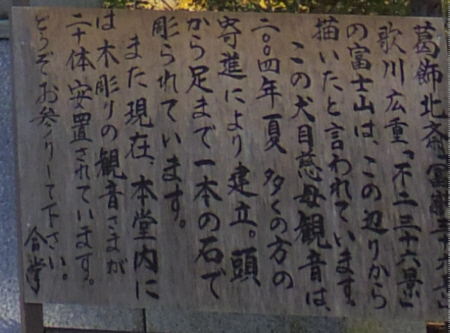 葛飾北斎「富嶽三十六景」
歌川広重「不二三十六景」
の富士山は、この辺りから
描いたと言われています。
この犬目慈母観音は、
二〇〇四年夏 多くの方の
寄進により建立。頭
から足まで一本の石で
彫られています。
また現在、本堂内に
は木彫りの観音さまが
二十体安置されています。
どうぞお参りして下さい。
合掌